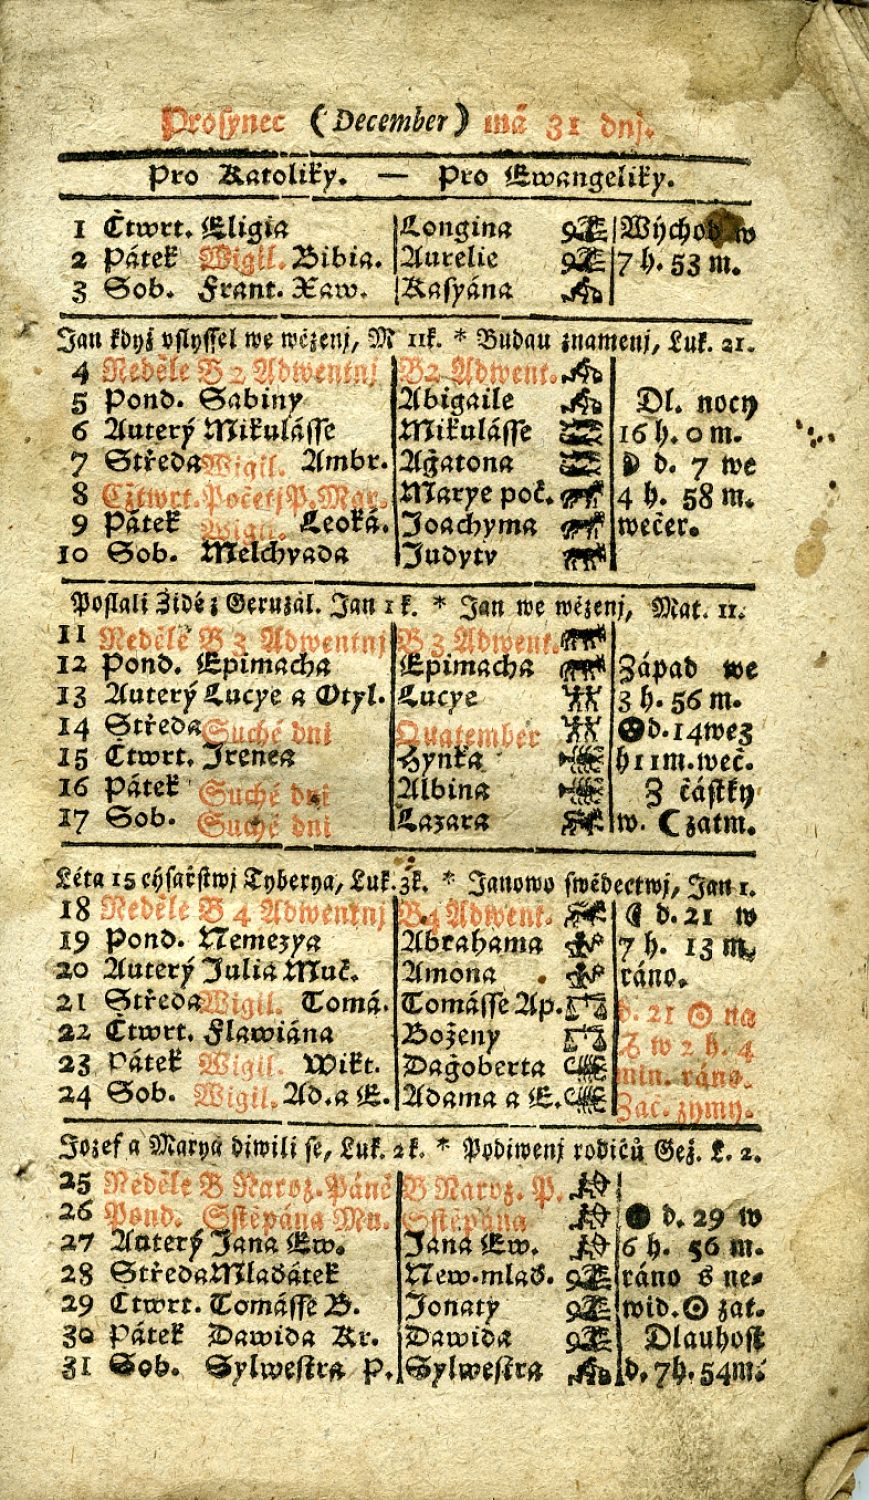 Prosynec (December) má 31 dnj.
Pro Katoliky. — Pro Ewangeliky.
1 Čtwrt. Eligia Longina Wýchod w
2 Pátek Wigil. Bibia. Aurelie 7 h. 53 m.
3 Sob. Frant. Xaw. Kasyána
Jan když vslyssel we wězenj, M 11k. * Budau znamenj, Luk. 21.
4 Neděle B 2 Adwentnj B 2 Adwent.
5 Pond. Sabiny Abigaile Dl. nocy
6 Auterý Mikulásse Mikulásse 16 h. 0 m.
7 Středa Wigil. Ambr. Agatona ☽ d. 7 we
8 Cžtwrt. Početj P. Mar. Marye poč. 4 h. 58 m.
9 Pátek Wigil. Leoká. Joachyma wečer.
10 Sob. Melchyada Judyty
Poslali Židé z Geruzál. Jan 1 k. * Jan we wězenj, Mat. 11.
11 Neděle B 3 Adwentnj B 3 Adwent.
12 Pond. Epimacha Epimacha Západ we
13 Auterý Lucye a Otyl. Lucye 3 h. 56 m.
14 Středa Suché dni Quatember d. 14 wez
15 Čtwrt. Irenea Hynka h 11 m. več.
16 Pátek Suché dni Albina Z částky
17 Sob. Suché dni Lazara w. ☾ zatm.
Léta 15 cýsařstwj Tyberya, Luk. 3k. * Janowo swědectwj, Jan 1.
18 Neděle B 4 Adwentnj B 4 Adwent. ☾ d. 21 w
19 Pond. Nemezya Abrahama 7 h. 13 m.
20 Auterý Julia Muč. Amona ráno.
21 Středa Wigil. Tomá. Tomásse Ap. d. 21 ☉ na
22 Čtwrt. Flawiána Boženy Z w 2 h. 4
23 Pátek Wigil. Wikt. Dagoberta min. ráno.
24 Sob. Wigil. Ad. a E. Adama a E. Zač. zymy.
Jozef a Marya diwili se, Luk. 2k. * Podiwenj rodičů Gež. L. 2.
25 Neděle B Naroz. Páně B Naroz. P.
26 Pond. Sstěpána Mu. Sstěpána ● d. 29 w
27 Auterý Jana Ew. Jana Ew. 6 h. 56 m.
28 Středa Mladátek New. mlad. ráno s ne-
29 Čtwrt. Tomásse B. Jonaty wid. ☉ zat.
30 Pátek Dawida Kr. Dawida Dlauhost
31 Sob. Sylwestra P. Sylwestra d. 7 h. 54 m.